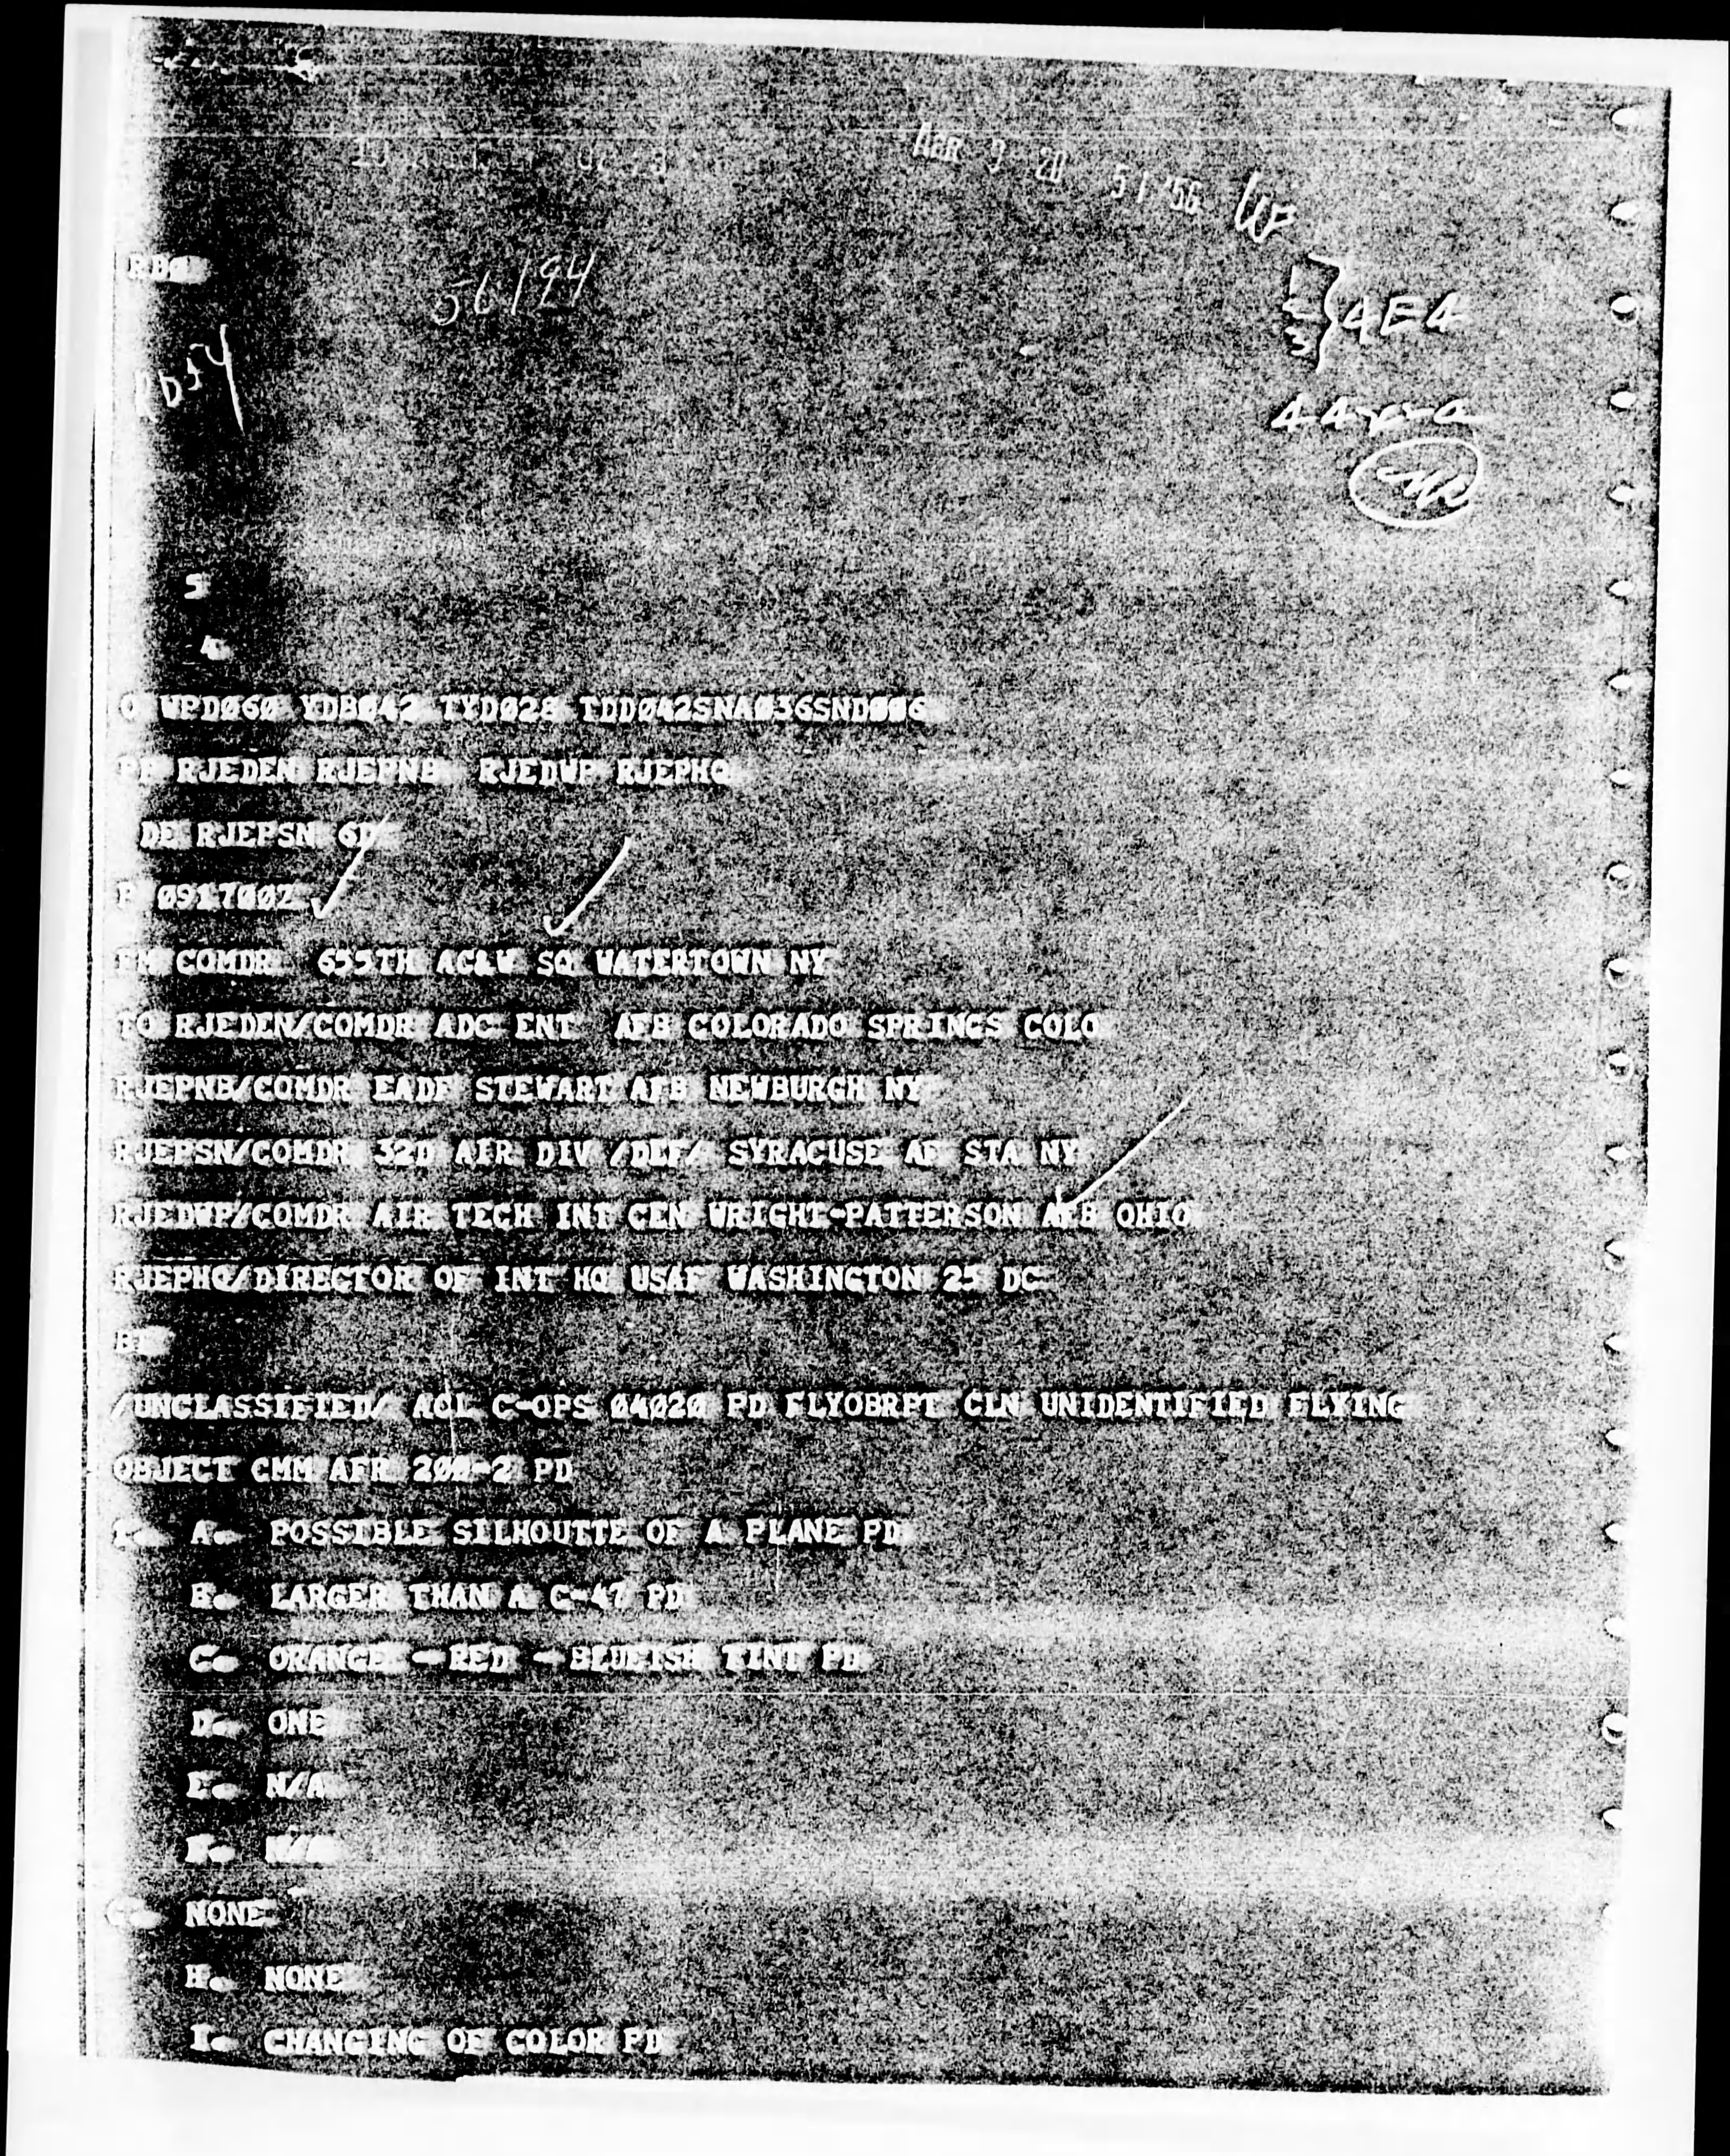 APR 9 20 51 '56
56194
4E4
5
WPD060 YDB042 TYD028 TDD042SNA036SND006
PP RJEDEN RJEPNB RJEDWP RJEPHQ
DE RJEPSN 6D
P 091700Z
FM COMDR 655TH AC&W SQ WATERTOWN NY
TO RJEDEN/COMDR ADC ENT AFB COLORADO SPRINGS COLO
RJEPNB/COMDR EADF STEWART AFB NEWBURGH NY
RJEPSN/COMDR 32D AIR DIV /DEF/ SYRACUSE AF STA NY
RJEDWP/COMDR AIR TECH INT CEN WRIGHT-PATTERSON AFB OHIO
RJEPHQ/DIRECTOR OF INT HQ USAF WASHINGTON 25 DC
/UNCLASSIFIED/ AOL C-OPS 04020 PD FLYOBRPT CLN UNIDENTIFIED FLYING
OBJECT CMM AFR 200-2 PD
A. POSSIBLE SILHOUTTE OF A PLANE PD
B. LARGER THAN A C-47 PD
C. ORANGE - RED - BLUEISH TINT PD
D. ONE
E. N/A
F. N/A
G. NONE
H. NONE
I. CHANGING OF COLOR PD